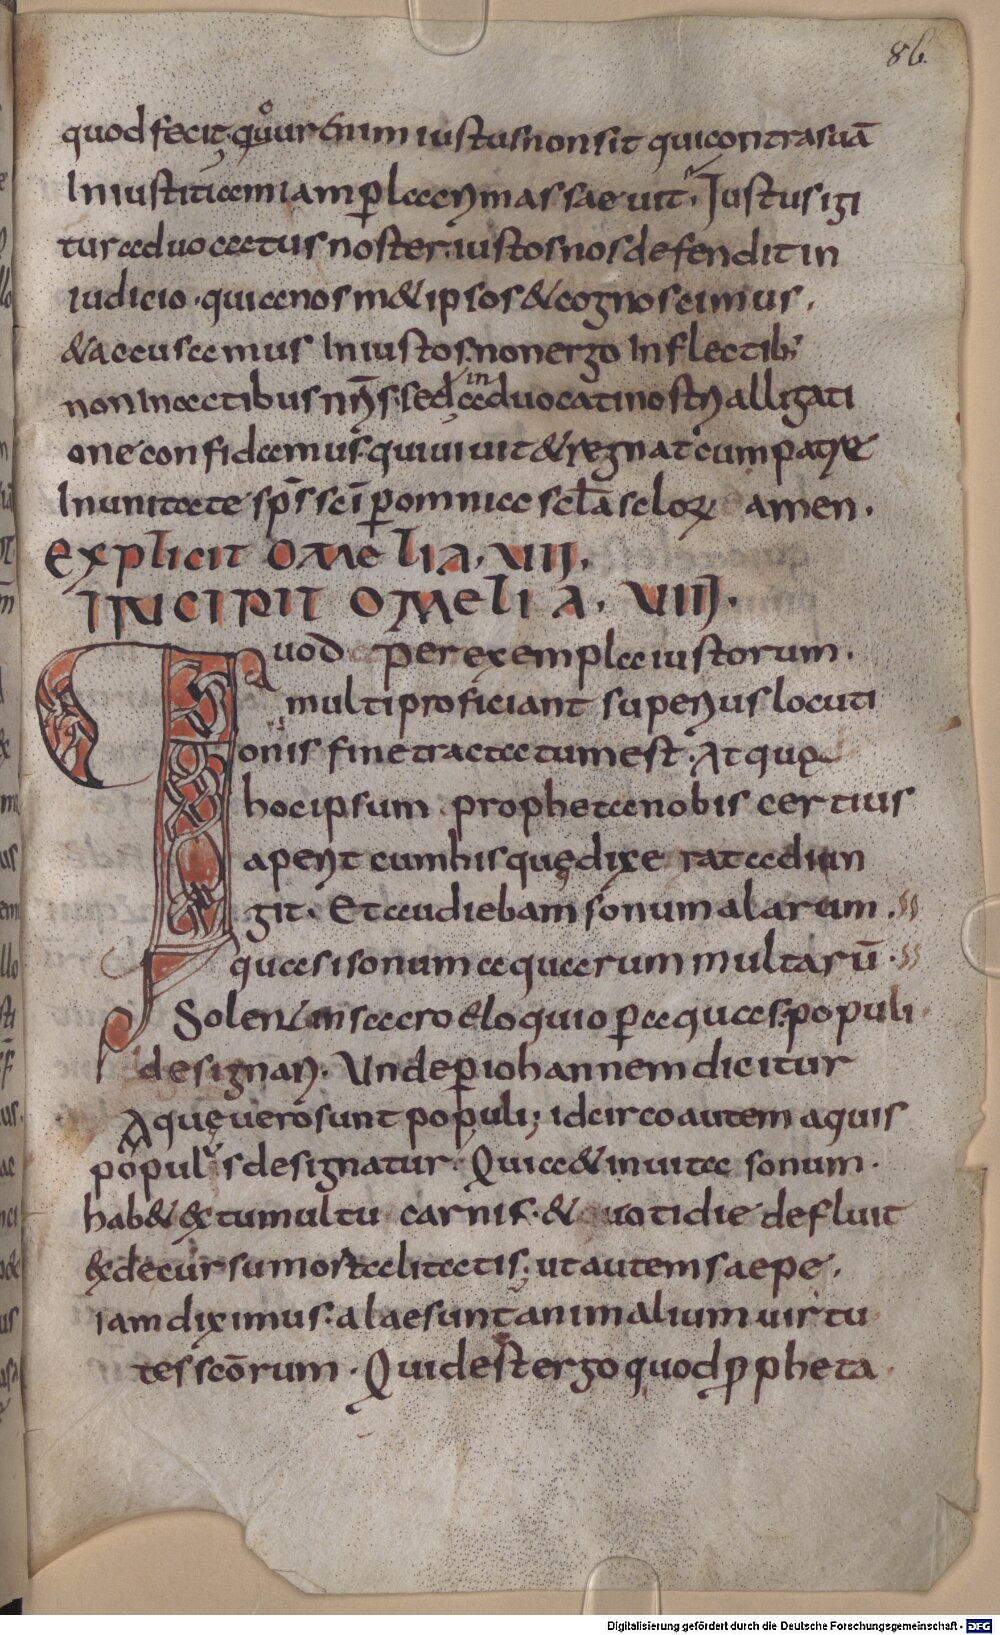 86.
quod fecit. quur enim iustus non sit qui contra suā
Iniustitiam iam p̄ lacrymas saeuit. Iustus igi
tur aduocatus noster. iustos nos defendit in
iudicio. quia nosm& ipsos & cognoscimus.
& accusamus Iniustos. non ergo In fletib;
non In actibus nr̄is. sed in aduocati nostri alligati
one confidamus. qui uiuit & regnat cum patre
In unitate sp̄s sc̄i p̄ omnia scl̄a scloꝝ amen.
Explicit omelia. VII.
INCIPIT OMELIA. VIII.
Quod per exempla iustorum.
multi proficiant superius locuti
onis fine tractatum est. At quę
hoc ipsum propheta nobis certius
aperit cum his quę dixerat adiun
git. Et audiebam sonum alarum.
quasi sonum aquarum multarū.
Solent in sacro eloquio p̄ aquas. populi
designari. Unde p̄ iohannem dicitur
Aquę uero sunt populi; idcirco autem aquis
populus designatur. Quia & in uita sonum.
hab& & tumultu carnis. & quotidie defluit
& decursu mortalitatis; ut autem saepe.
iam diximus. alae sunt animalium uirtu
tes scōrum. Quid est ergo quod ꝓpheta
Digitalisierung gefördert durch die Deutsche Forschungsgemeinschaft - DFG